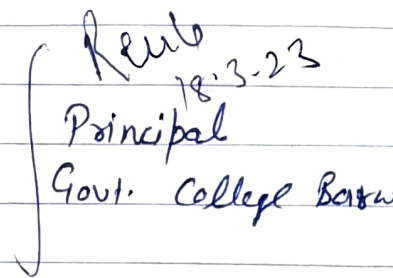 Renu
18.3-23
Principal
Govt. College